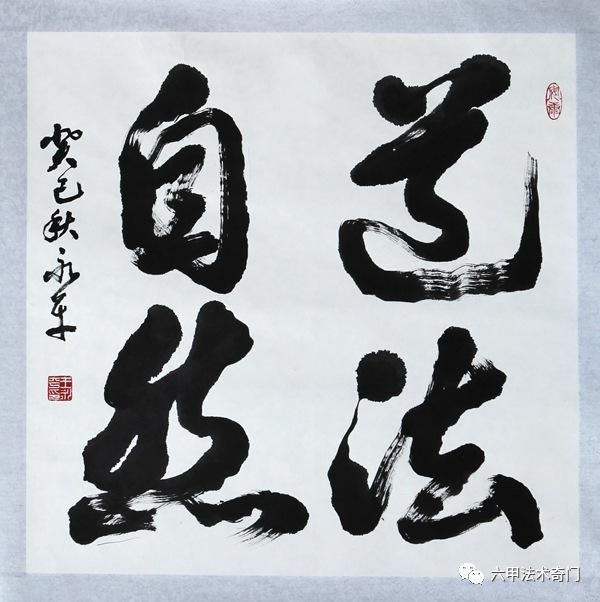 道法
自然
癸巳秋永
六甲法术奇门